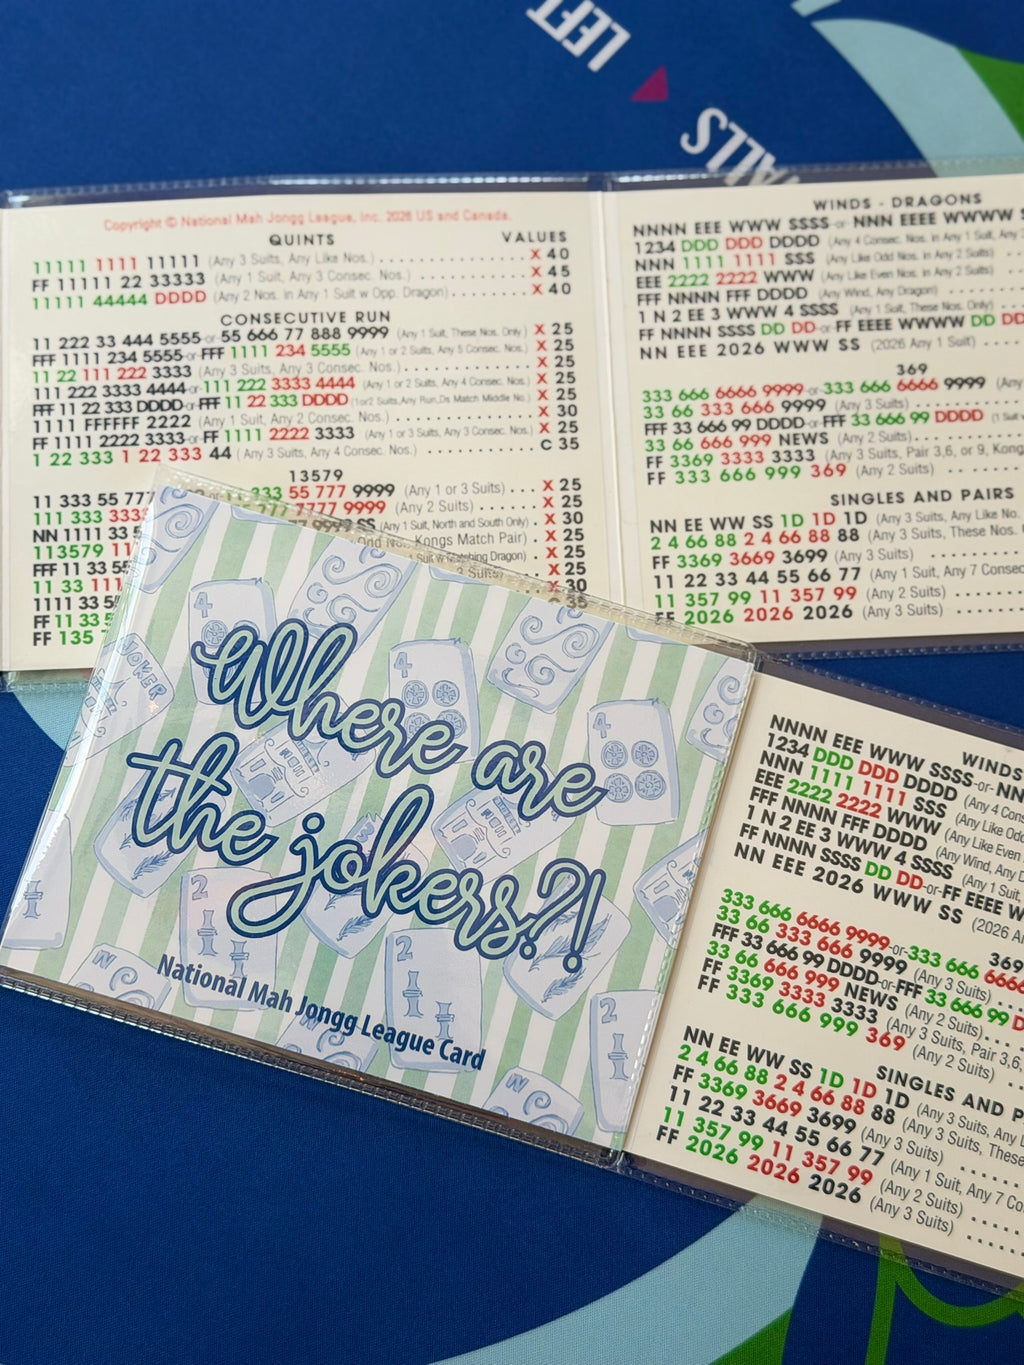 LEFT
WALLS
Copyright © National Mah Jongg League, Inc. 2026 US and Canada.
QUINTS
VALUES
11111 1111 11111 (Any 3 Suits, Any Like No.) X 40
FF 11111 22 33333 (Any 1 Suit, Any 3 Consec. Nos.) X 45
11111 44444 DDDD (Any 2 Nos. in Any 1 Suit w Opp. Dragon) X 40
CONSECUTIVE RUN
11 222 33 444 5555-or-55 666 77 888 9999 (Any 1 Suit, These Nos. Only) X 25
FFF 1111 234 5555-or-FFF 1111 234 5555 (Any 1 or 2 Suits, Any 5 Consec. Nos.) X 25
11 22 111 222 3333 (Any 3 Suits, Any 3 Consec. Nos.) X 25
111 222 3333 4444-or-111 222 3333 4444 (Any 1 or 2 Suits, Any 4 Consec. Nos.) X 25
FFF 11 22 333 DDDD-or-FFF 11 22 333 DDDD (1or2 Suits,Any Run,Ds Match Middle No.) X 25
1111 FFFFFF 2222 (Any 1 Suit, Any 2 Consec. Nos.) X 30
FF 1111 2222 3333-or-FF 1111 2222 3333 (Any 1 or 3 Suits, Any 3 Consec. Nos.) X 25
1 22 333 1 22 333 44 (Any 3 Suits, Any 4 Consec. Nos.) C 35
13579
11 333 55 777 333 55 777 9999 (Any 1 or 3 Suits) X 25
111 333 3333 7777 9999 (Any 2 Suits) X 25
NN 1111 33 SS (Any 1 Suit, North and South Only) X 30
113579 Odd No., Kongs Match Pair) X 25
FFF 11 33 55 Suit w Matching Dragon) X 25
11 33 111 3 Suits) X 30
1111 33 55 35
FF 11 33
FF 135
WINDS - DRAGONS
NNNN EEE WWW SSSS-or-NNN EEEE WWWW
1234 DDD DDD DDDD (Any 4 Consec. Nos. in Any 1 Suit, Any
NNN 1111 1111 SSS (Any Like Odd Nos. in Any 2 Suits)
EEE 2222 2222 WWW (Any Like Even Nos. in Any 2 Suits)
FFF NNNN FFF DDDD (Any Wind, Any Dragon)
1 N 2 EE 3 WWW 4 SSSS (Any 1 Suit, These Nos. Only)
FF NNNN SSSS DD DD-or-FF EEEE WWWW DD DD
NN EEE 2026 WWW SS (2026 Any 1 Suit)
369
333 666 6666 9999-or-333 666 6666 9999 (Any
33 66 333 666 9999 (Any 3 Suits)
FFF 33 666 99 DDDD-or-FFF 33 666 99 DDDD (1
33 66 666 999 NEWS (Any 2 Suits)
FF 3369 3333 3333 (Any 3 Suits, Pair 3,6, or 9, Kong
FF 333 666 999 369 (Any 2 Suits)
SINGLES AND PAIRS
NN EE WW SS 1D 1D 1D (Any 3 Suits, Any Like No.
2 4 66 88 2 4 66 88 88 (Any 3 Suits, These Nos.
FF 3369 3669 3699 (Any 3 Suits)
11 22 33 44 55 66 77 (Any 1 Suit, Any 7 Consec
11 357 99 11 357 99 (Any 2 Suits)
FF 2026 2026 2026 (Any 3 Suits)
Where are
the jokers?!
National Mah Jongg League Card
WINDS
NNNN EEE WWW SSSS-or-NN
1234 DDD DDD DDDD (Any 4 Cons
NNN 1111 1111 SSS (Any Like Odd
EEE 2222 2222 WWW (Any Like Even
FFF NNNN FFF DDDD (Any Wind, Any D
1 N 2 EE 3 WWW 4 SSSS (Any 1 Suit,
FF NNNN SSSS DD DD-or-FF EEEE W
NN EEE 2026 WWW SS (2026 An
369
333 666 6666 9999-or-333 666 6666
33 66 333 666 9999 (Any 3 Suits)
FFF 33 666 99 DDDD-or-FFF 33 666 99 D
33 66 666 999 NEWS (Any 2 Suits)
FF 3369 3333 3333 (Any 3 Suits, Pair 3,6,
FF 333 666 999 369 (Any 2 Suits)
SINGLES AND P
NN EE WW SS 1D 1D 1D (Any 3 Suits, Any L
2 4 66 88 2 4 66 88 88 (Any 3 Suits, These
FF 3369 3669 3699 (Any 3 Suits)
11 22 33 44 55 66 77 (Any 1 Suit, Any 7 Co
11 357 99 11 357 99 (Any 2 Suits)
FF 2026 2026 2026 (Any 3 Suits)